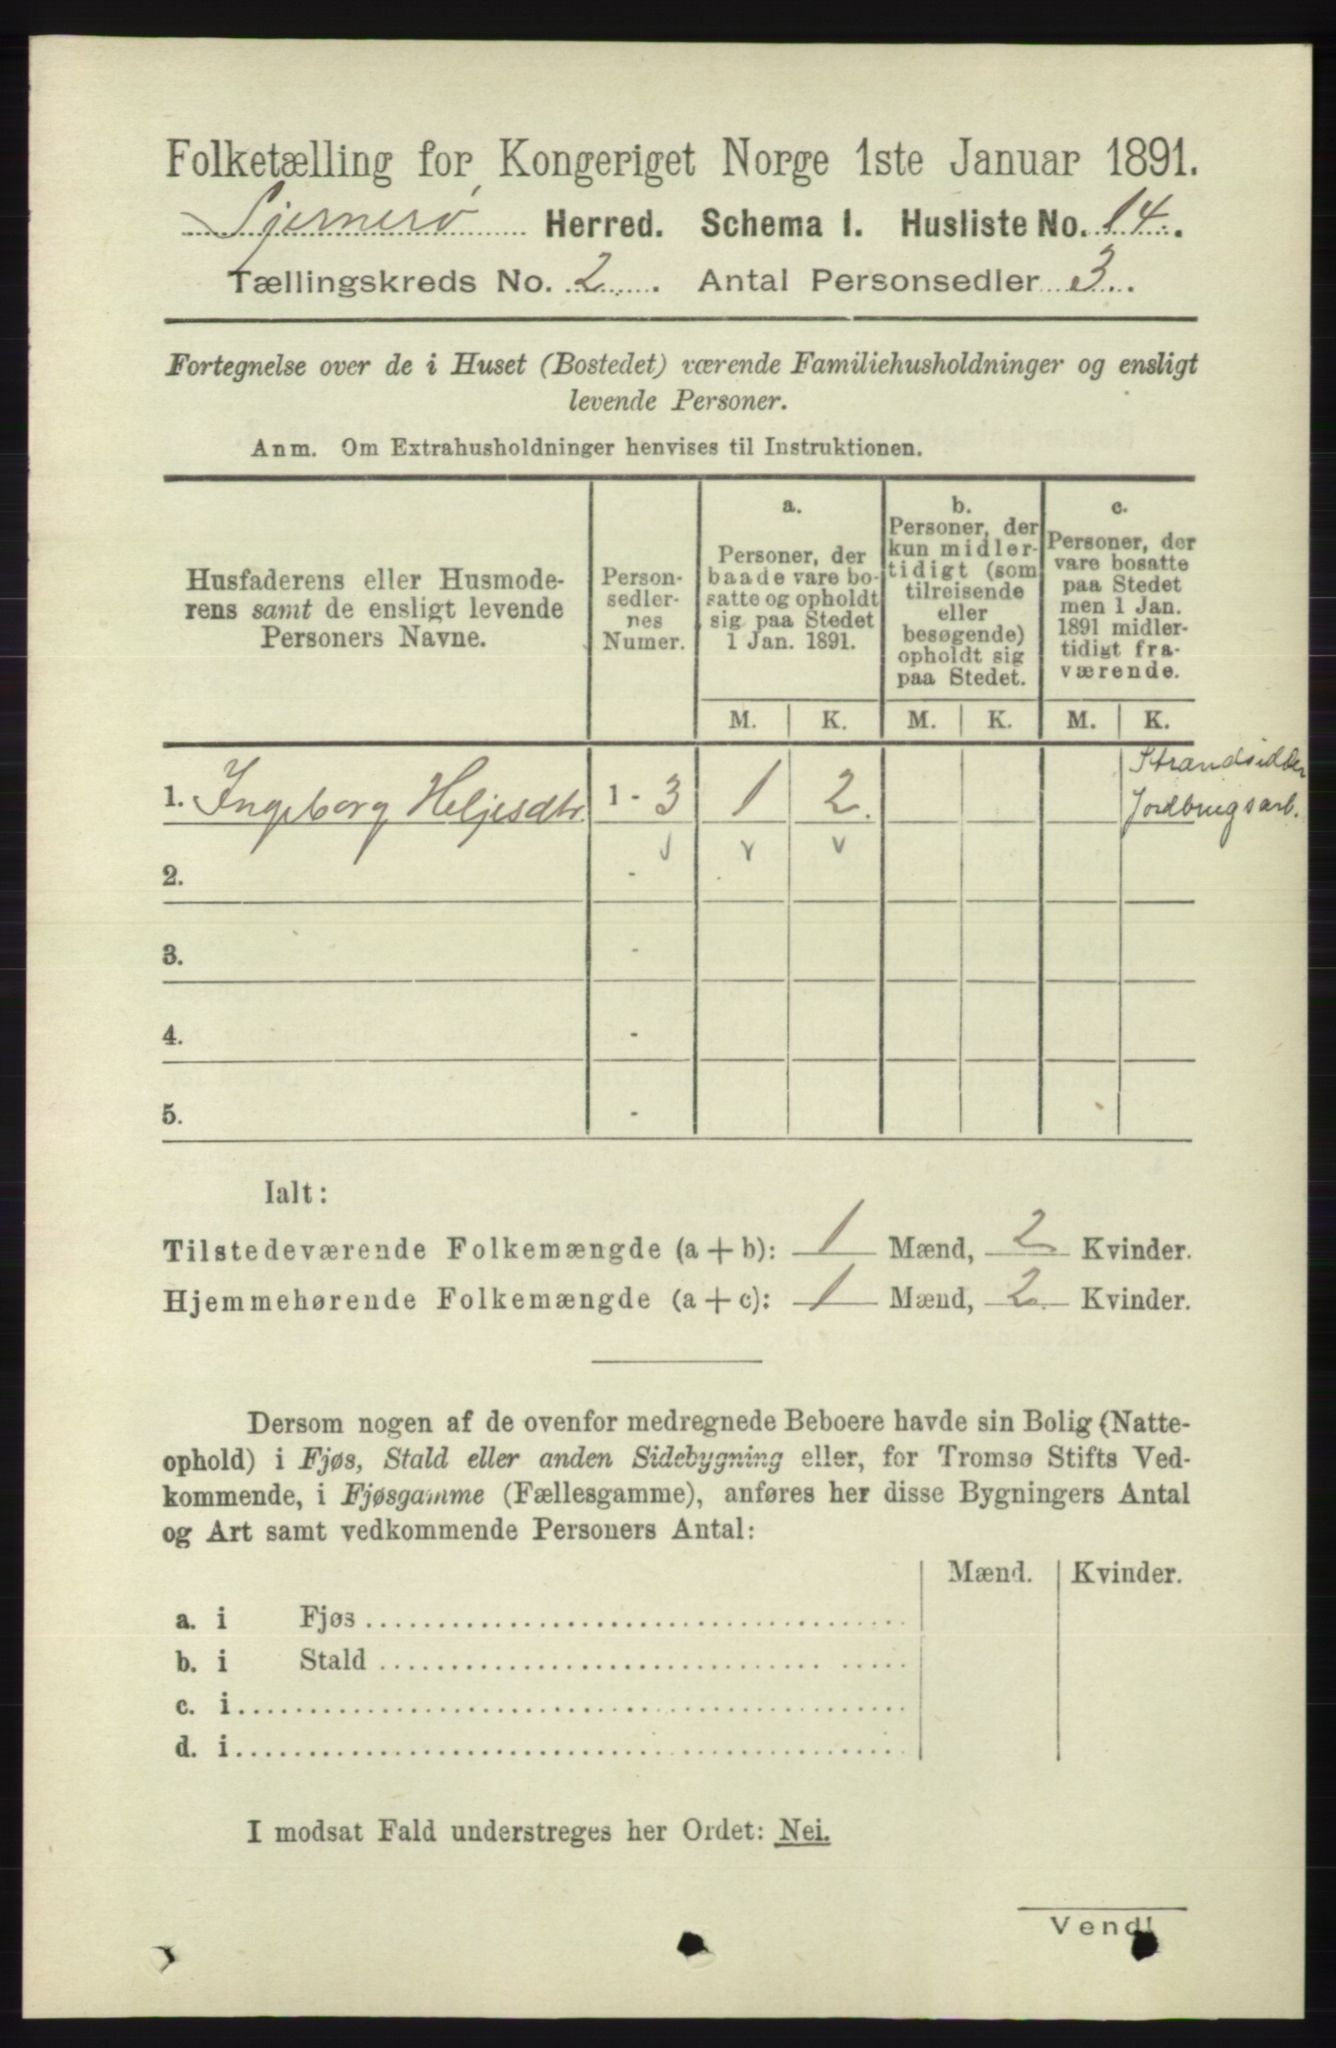 Folketælling for Kongeriget Norge 1ste Januar 1891.
Sjernerø Herred. Schema I. Husliste No. 14.
Tællingskreds No. 2. Antal Personsedler 3.
Fortegnelse over de i Huset (Bostedet) værende Familiehusholdninger og ensligt
levende Personer.
Anm. Om Extrahusholdninger henvises til Instruktionen.
Husfaderens eller Husmode-
rens samt de ensligt levende
Personers Navne.
Person-
sedler-
nes
Numer.
a.
Personer, der
baade vare bo-
satte og opholdt
sig paa Stedet
1 Jan. 1891.
b.
Personer, der
kun midler-
tidigt (som
tilreisende
eller
besøgende)
opholdt sig
paa Stedet.
c.
Personer, der
vare bosatte
paa Stedet
men 1 Jan.
1891 midler-
tidigt fra-
værende.
M. K. M. K. M. K.
Strandsidder
1. Ingeborg Heljesdtr. 1 - 3 1 2. Jordbrugsarb.
2. -
3. -
4. -
5. -
Ialt:
Tilstedeværende Folkemængde (a + b): 1 Mænd, 2 Kvinder.
Hjemmehørende Folkemængde (a + c): 1 Mænd, 2 Kvinder.
Dersom nogen af de ovenfor medregnede Beboere havde sin Bolig (Natte-
ophold) i Fjøs, Stald eller anden Sidebygning eller, for Tromsø Stifts Ved-
kommende, i Fjøsgamme (Fællesgamme), anføres her disse Bygningers Antal
og Art samt vedkommende Personers Antal:
Mænd. Kvinder.
a. i Fjøs
b. i Stald
c. i
d. i
I modsat Fald understreges her Ordet: Nei.
Vend!